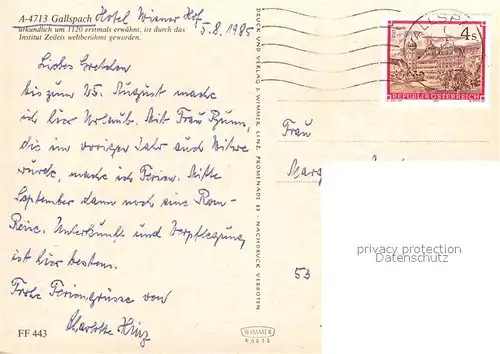 A-4713 Gallspach Hotel Wiener Hof
urkundlich um 1120 erstmals erwähnt, ist durch das
Institut Zeileis weltberühmt geworden.
5.8.1985
Liebes Gretchen
Bis zum 25. August mache
ich hier Urlaub. Mit Frau
die im vorigen Jahr auch Witwe
wurde, mache ich Ferien. Mitte
September dann noch eine Rom-
Reise. Unterkunft und Verpflegung
ist hier bestens.
Frohe Feriengrüsse von
Charlotte Hinz
FF 443
DRUCK UND VERLAG J. WIMMER, LINZ, PROMENADE 23 - NACHDRUCK VERBOTEN
4 S
REPUBLIK ÖSTERREICH
Frau
53
WIMMER
KARTE
privacy protection
Datenschutz